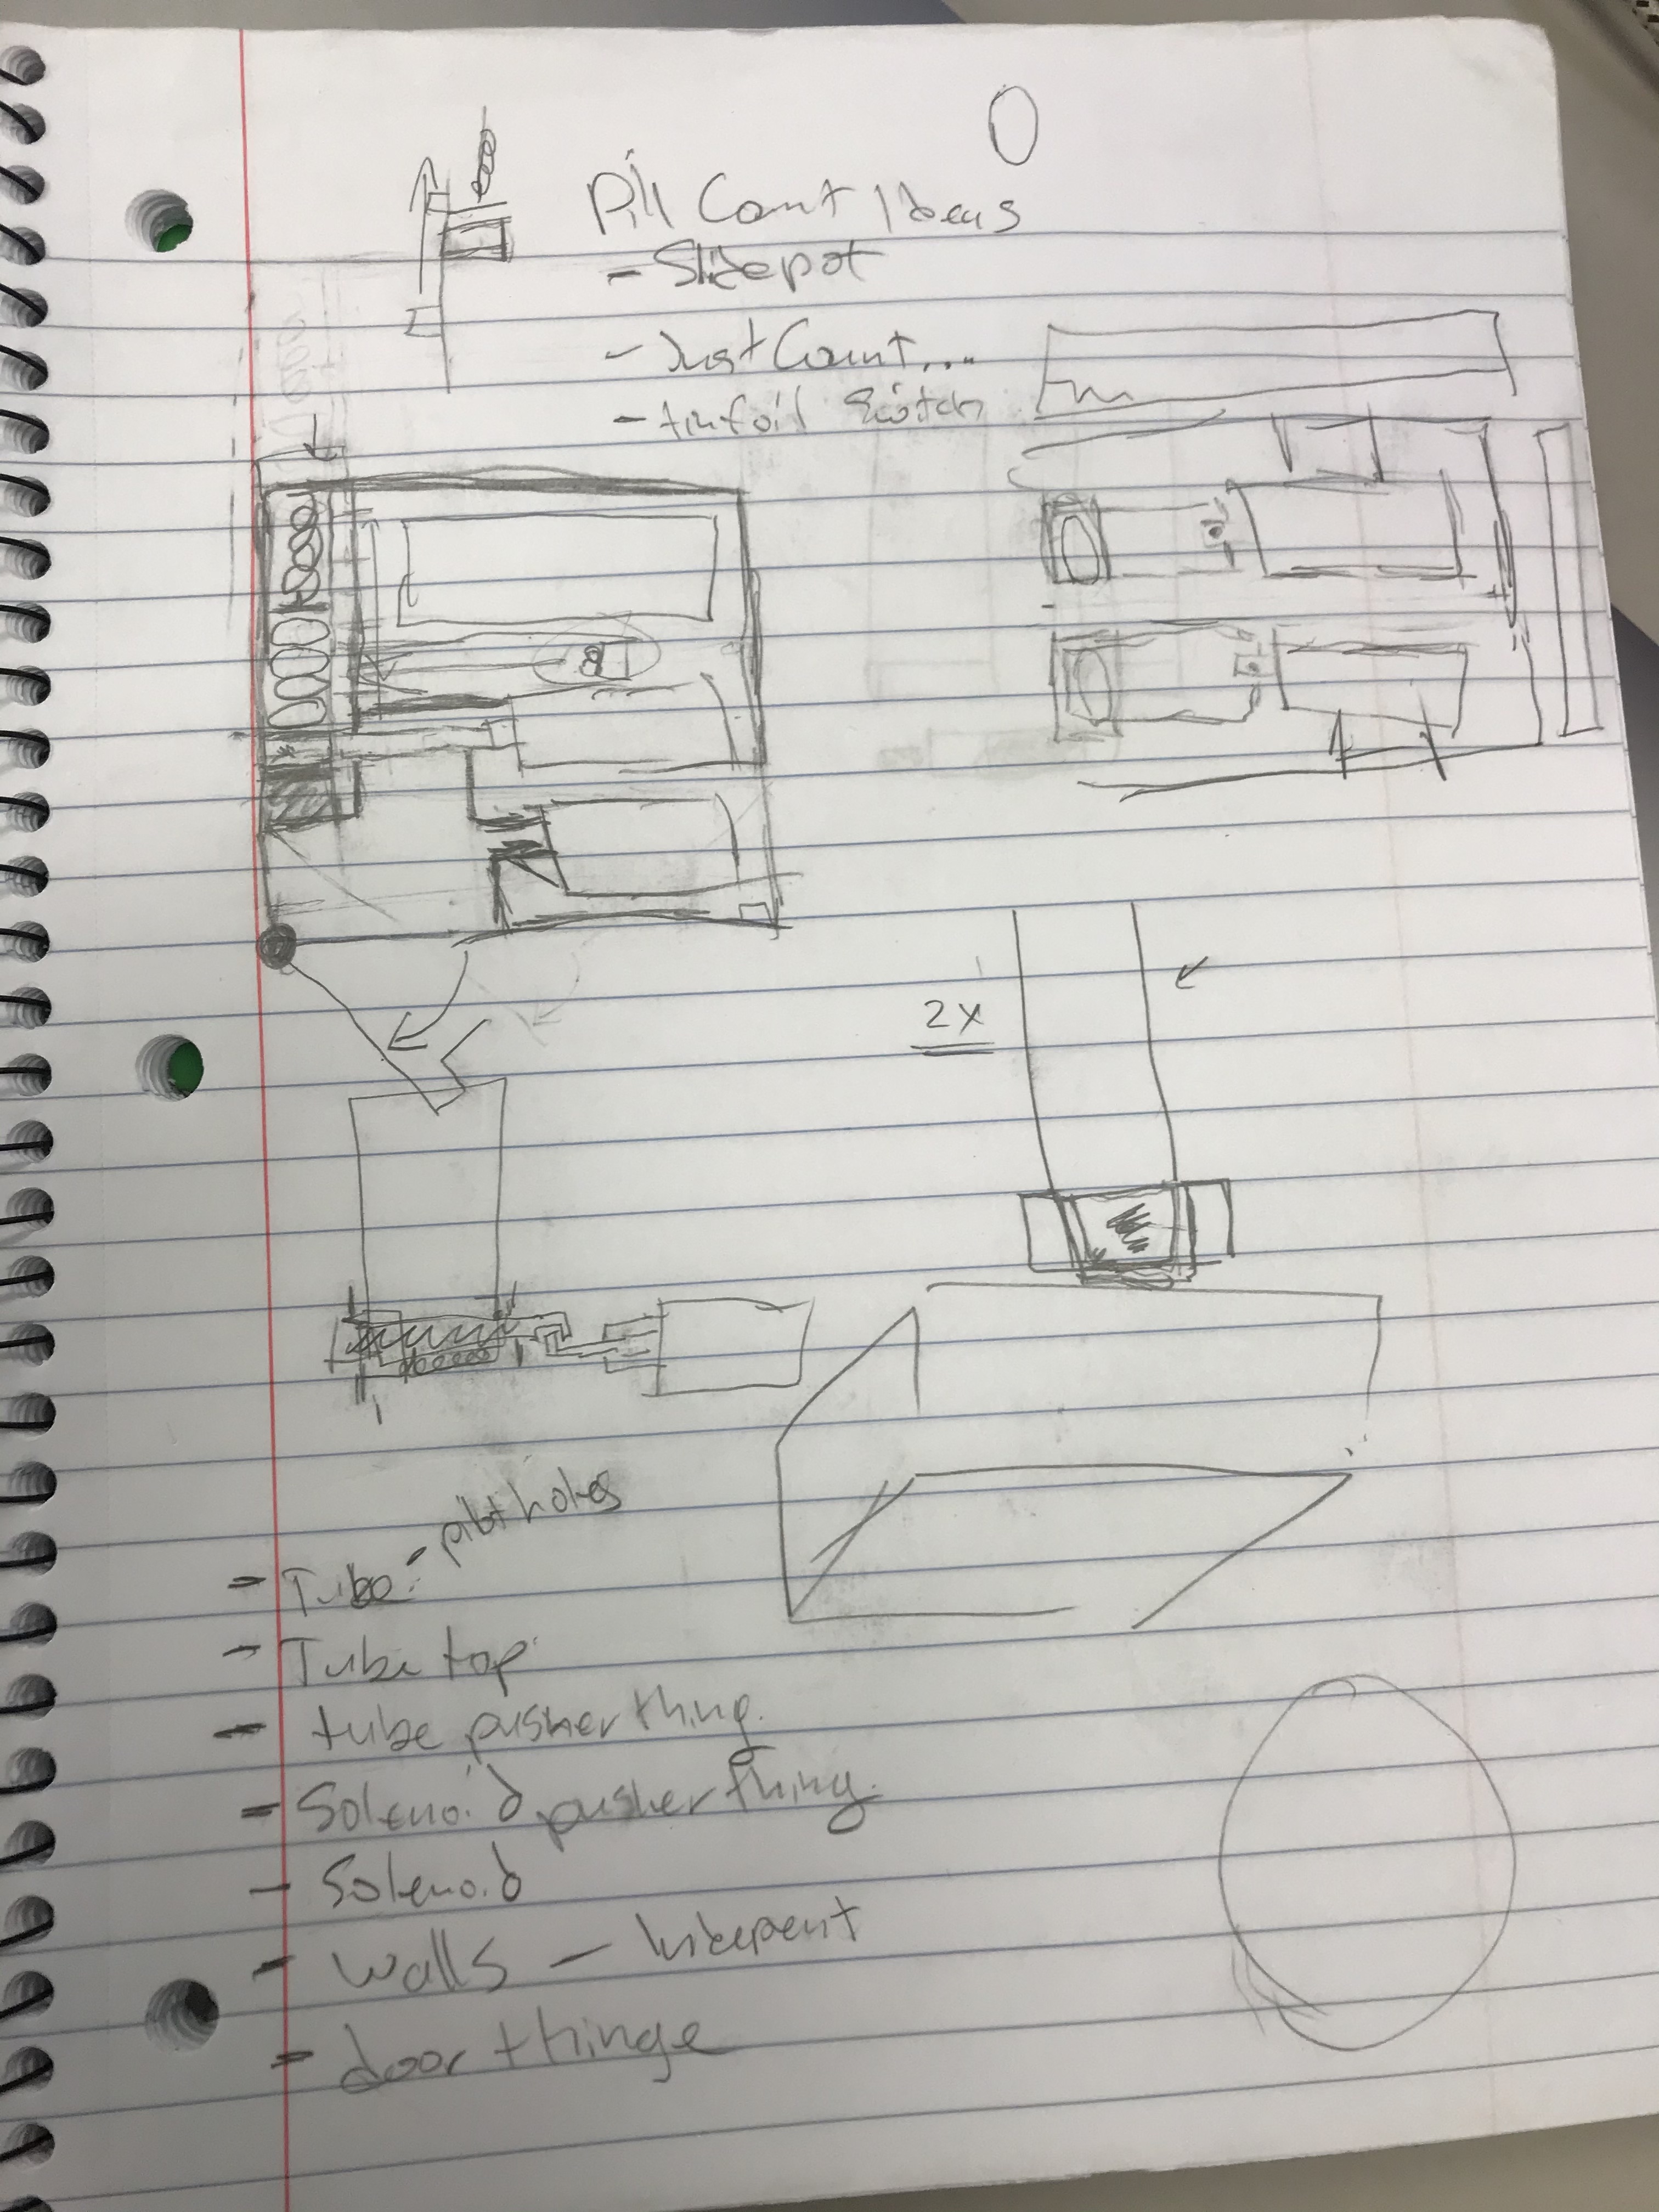 Pill Count Ideas
- Slidepot
- Just Count...
- tinfoil Switch
2x
- Tube - pilot holes
- Tube top
- tube pusher thing.
- Solenoid pusher thing.
- Solenoid
- walls -
- door + hinge